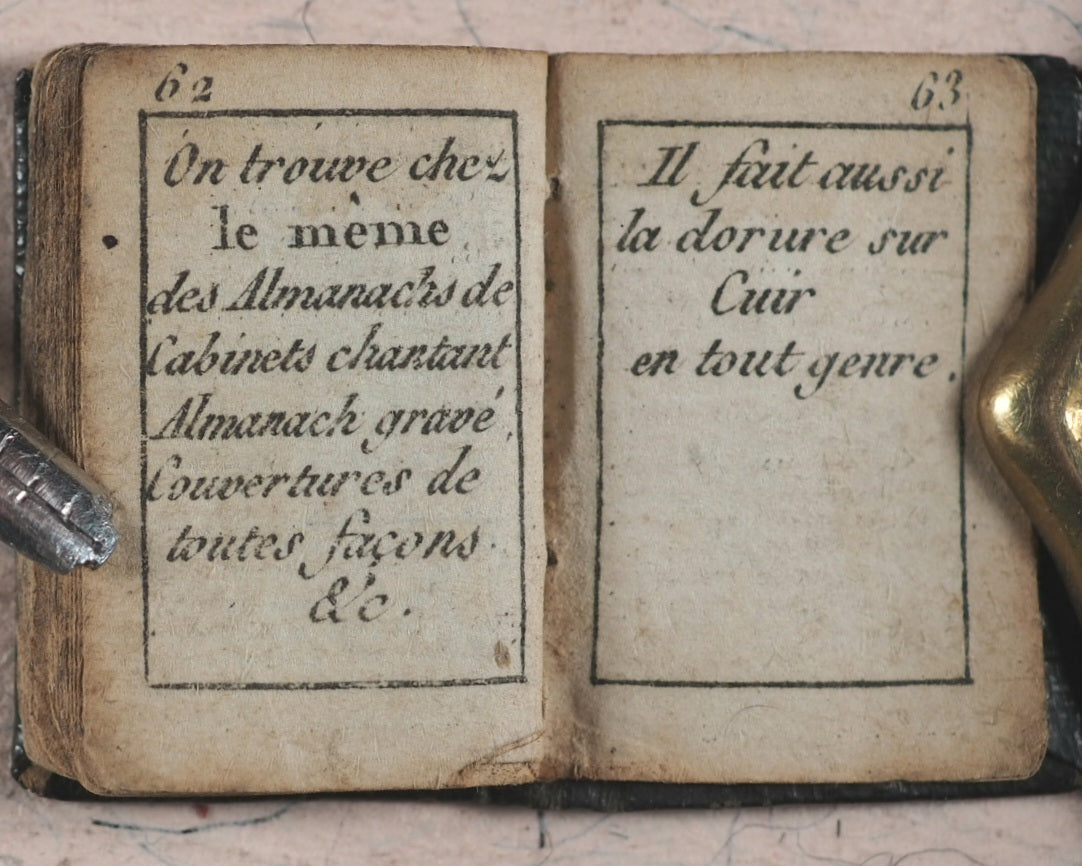 62
On trouve chez
le mème
des Almanachs de
Cabinets chantant
Almanach gravé.
Couvertures de
toutes façons.
&c.
63
Il fait aussi
la dorure sur
Cuir
en tout genre.